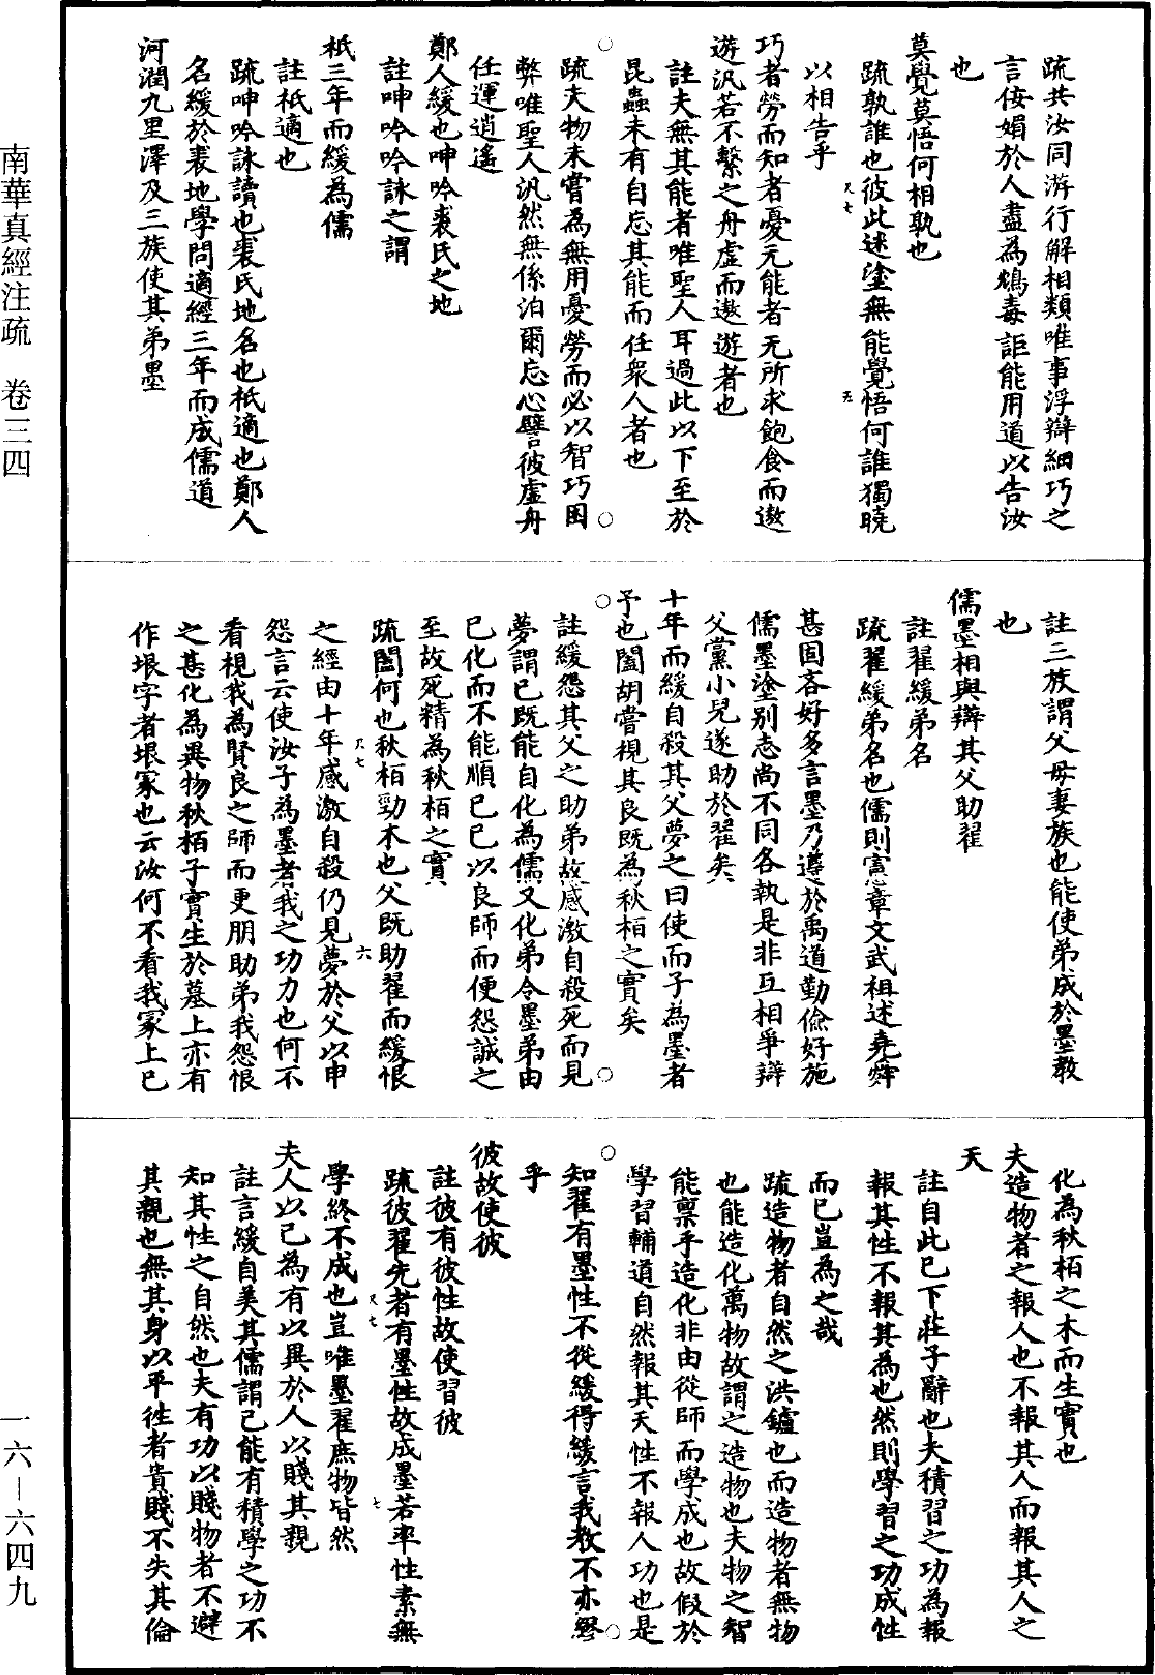 疏共汝同游行解相類唯事浮辯細巧之
言佞媚於人盡為鴆毒詎能用道以告汝
也
莫覺莫悟何相孰也
疏孰誰也彼此迷塗無能覺悟何誰獨曉
以相告乎
尺七
无
巧者勞而知者憂无能者无所求飽食而遨
遊汎若不繫之舟虛而遨遊者也
註夫無其能者唯聖人耳過此以下至於
昆蟲未有自忘其能而任衆人者也
疏夫物未嘗為無用憂勞而必以智巧困
弊唯聖人汎然無係泊爾忘心譬彼虛舟
任運逍遙
鄭人緩也呻吟裘氏之地
註呻吟吟詠之謂
祇三年而緩為儒
註祇適也
疏呻吟詠讀也裘氏地名也祇適也鄭人
名緩於裘地學問適經三年而成儒道
河潤九里澤及三族使其弟墨
註三族謂父母妻族也能使弟成於墨教
也
儒墨相與辯其父助翟
註翟緩弟名
疏翟緩弟名也儒則憲章文武祖述堯舜
甚固吝好多言墨乃遵於禹道勤儉好施
儒墨塗別志尚不同各執是非互相爭辯
父黨小兒遂助於翟矣
十年而緩自殺其父夢之曰使而子為墨者
予也闔胡嘗視其良既為秋栢之實矣
註緩怨其父之助弟故感激自殺死而見
夢謂已既能自化為儒又化弟令墨弟由
已化而不能順已已以良師而便怨誠之
至故死精為秋栢之實
疏闔何也秋栢勁木也父既助翟而緩恨
尺七
六
之經由十年感激自殺仍見夢於父以申
怨言云使汝子為墨者我之功力也何不
看視我為賢良之師而更朋助弟我怨恨
之甚化為異物秋栢子實生於墓上亦有
作垠字者垠冢也云汝何不看我冢上已
化為秋栢之木而生實也
夫造物者之報人也不報其人而報其人之
天
註自此已下莊子辭也夫積習之功為報
報其性不報其為也然則學習之功成性
而已豈為之哉
疏造物者自然之洪鑪也而造物者無物
也能造化萬物故謂之造物也夫物之智
能稟乎造化非由從師而學成也故假於
學習輔道自然報其天性不報人功也是
知翟有墨性不從緩得緩言我教不亦繆
乎
彼故使彼
註彼有彼性故使習彼
疏彼翟先者有墨性故成墨若率性素無
尺七
七
學終不成也豈唯墨翟庶物皆然
夫人以已為有以異於人以賤其親
註言緩自美其儒謂已能有積學之功不
知其性之自然也夫有功以賤物者不避
其親也無其身以平徃者貴賤不失其倫
南華真經注疏 卷三四
一六—六四九